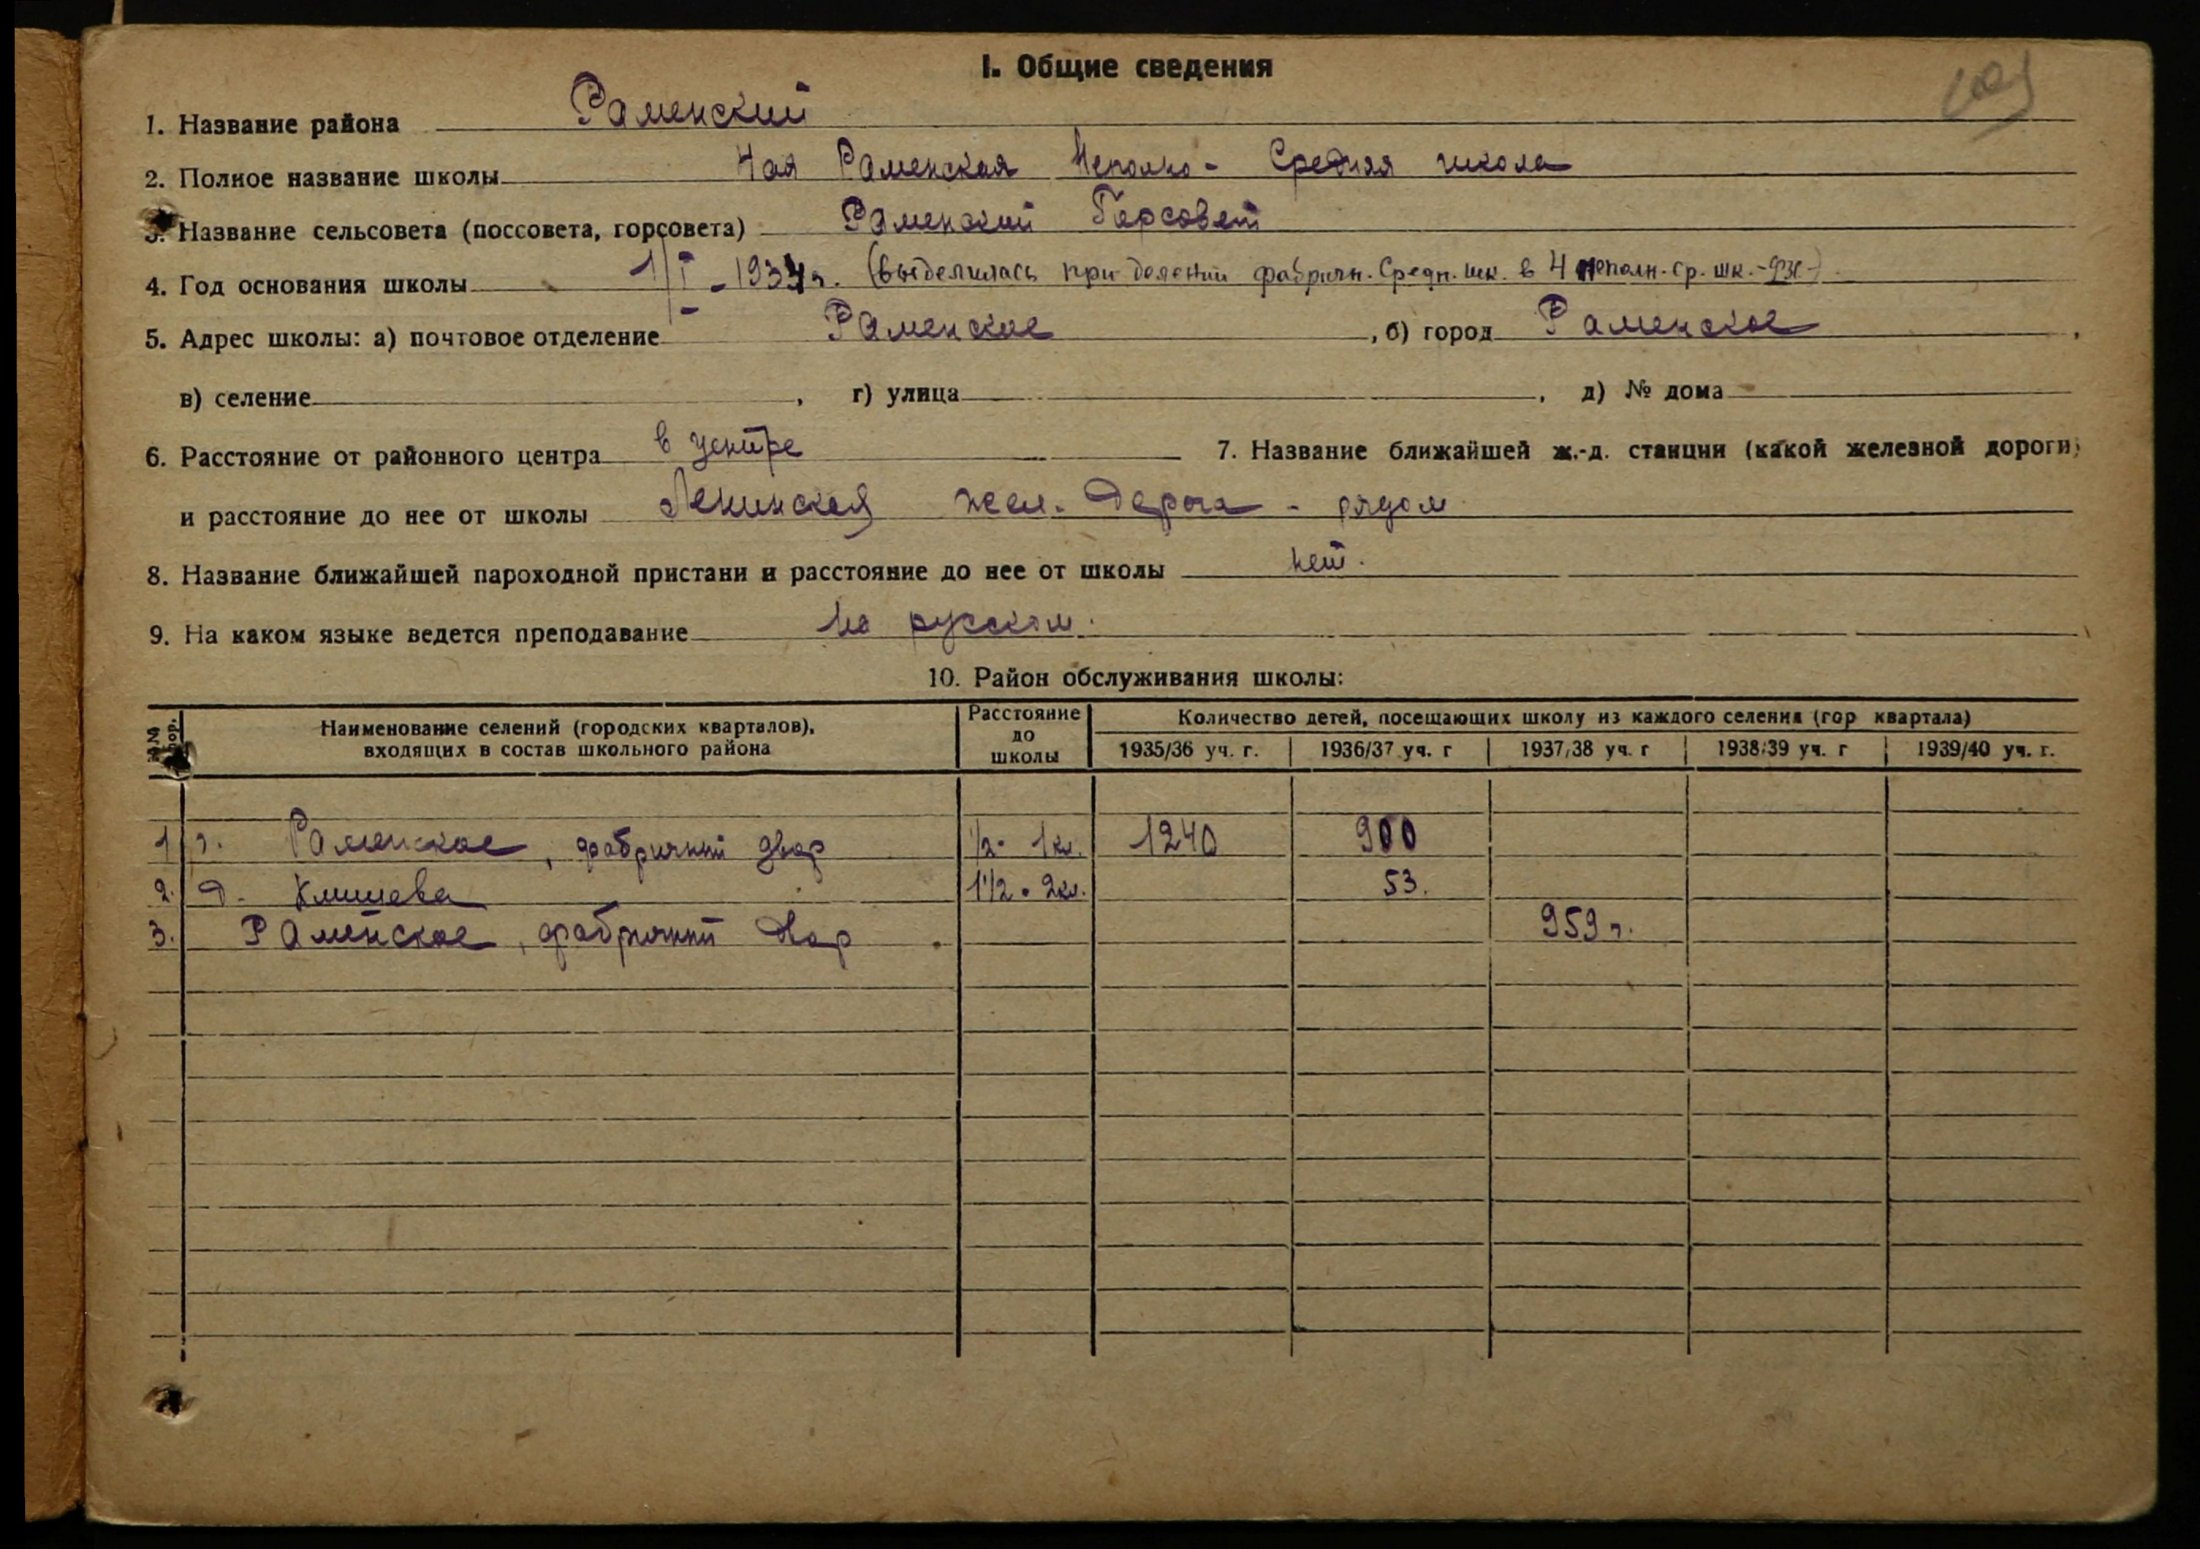 I. Общие сведения
1. Название района Раменский
2. Полное название школы 4ая Раменская Неполно-Средняя школа
3. Название сельсовета (поссовета, горсовета) Раменский Горсовет
4. Год основания школы 1/I - 1934 г. (выделилась при делении фабричн. Средн. шк. в 4 неполн. ср. шк.
5. Адрес школы: а) почтовое отделение Раменское, б) город Раменское,
в) селение , г) улица , д) № дома
6. Расстояние от районного центра в центре 7. Название ближайшей ж.-д. станции (какой железной дороги)
и расстояние до нее от школы Ленинская жел. Дорога - рядом
8. Название ближайшей пароходной пристани и расстояние до нее от школы нет.
9. На каком языке ведется преподавание На русском.
10. Район обслуживания школы:
Наименование селений (городских кварталов), Расстояние Количество детей, посещающих школу из каждого селения (гор квартала)
входящих в состав школьного района до школы 1935/36 уч. г. 1936/37 уч. г 1937/38 уч. г 1938/39 уч. г 1939/40 уч. г.
1 г. Раменское, фабричный двор 1/2 - 1 кл. 1240 900
2. д. Клишева 1 1/2 - 2 кл. 53.
3. Раменское, фабричный двор 959 г.